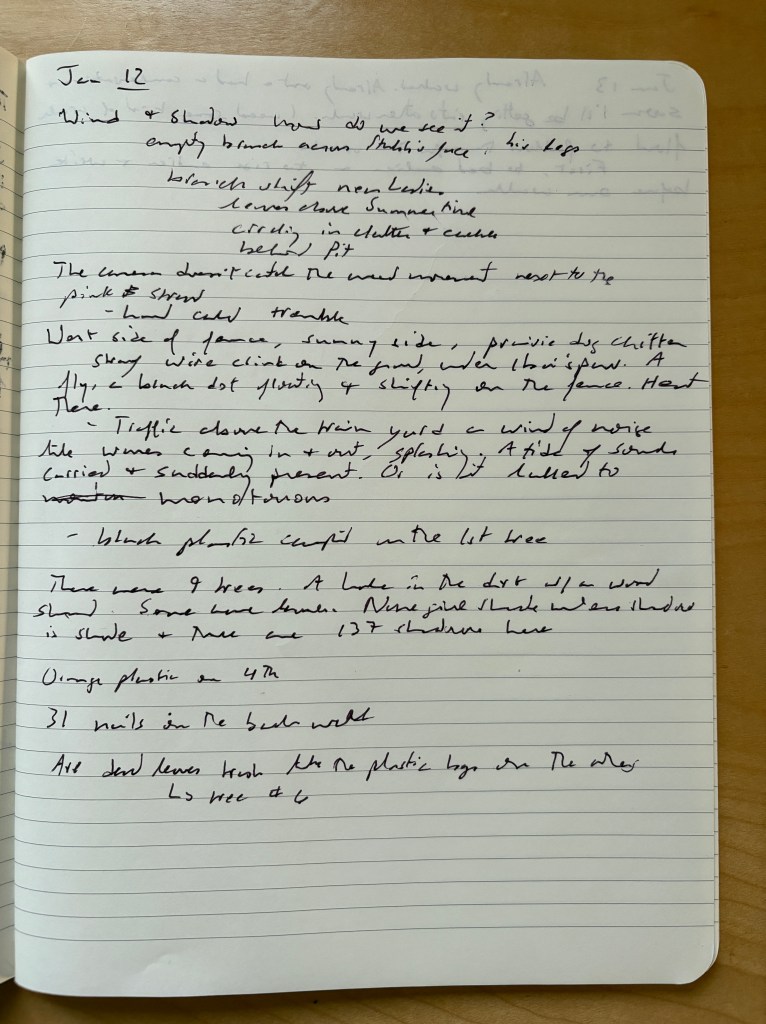 Jan 12
Wind & Shadow how do we see it?
empty branch across face, his legs
branch shift near
leaves above Summertime
circling in clutter &
behind Pit
The camera doesn't catch the movement next to the
pink
- hand tremble
West side of fence, sunny side, prairie dog chitter
wire clink on the ground, under A
fly, a black dot floating & shifting on the fence. Heat
There.
- Traffic above the train yard a wind of noise
like waves coming in & out, splashing. A tide of sounds
carried & suddenly present. Or is it lulled to
monotonous
- black plastic caught in the 1st tree
There were 9 trees. A hole in the dirt w/a wood
Some have leaves. None give shade unless shadow
is shade & there are 137 shadows here
Orange plastic on 4th
31 nails on the back wall
Are dead leaves trash like the plastic bags on the
↳ tree # 6